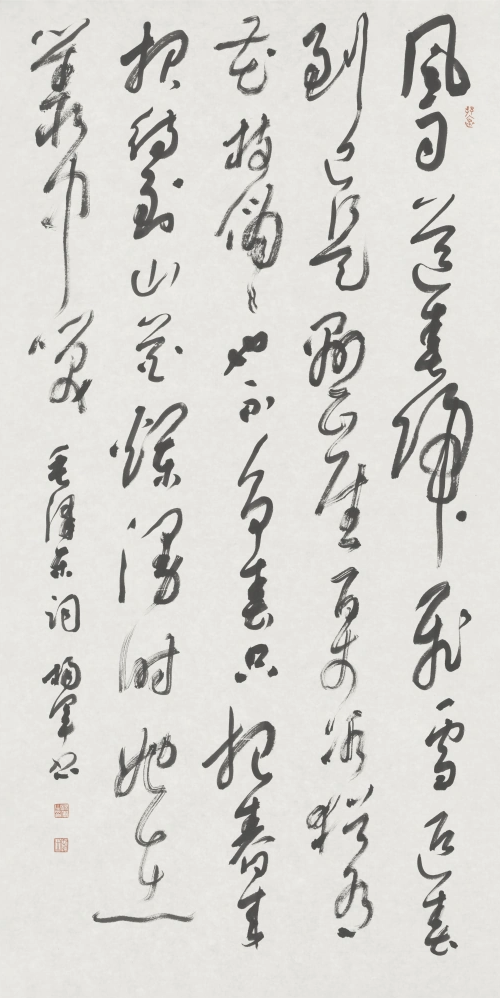 風雨送春歸飛雪迎春
到已是懸崖百丈冰猶有
花枝俏〻也不爭春只把春來
報待到山花爛漫時她在
叢中笑 毛澤東詞 楊軍書